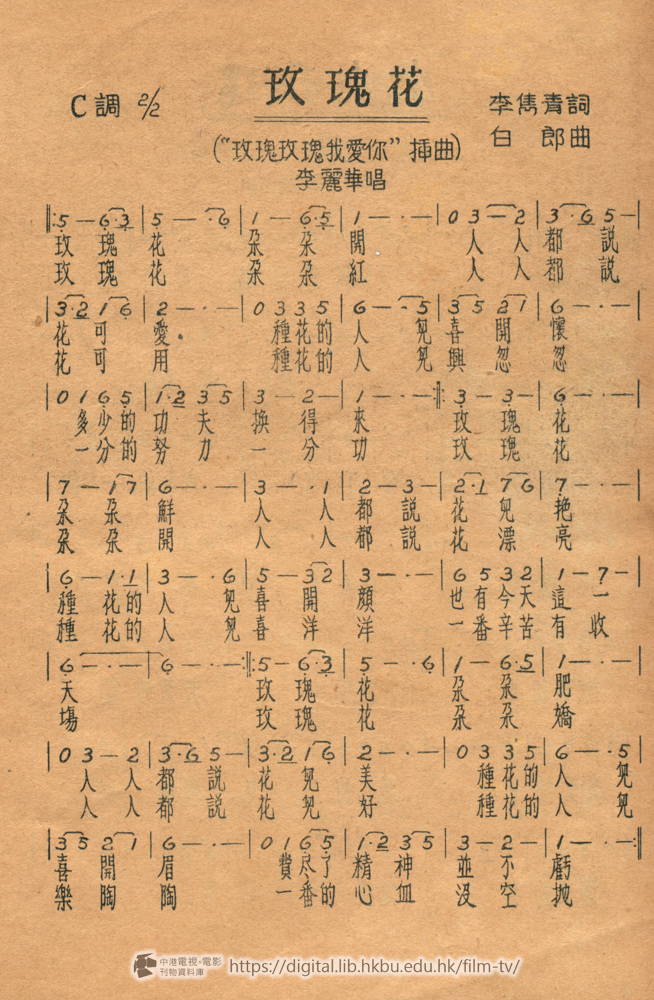 玫瑰花
C調 2/2
李雋青詞
白郎曲
(“玫瑰玫瑰我愛你”插曲)
李麗華唱
‖:5 — 6·3 | 5 — · 6 | 1 — 6·5 | 1 — · — | 0 3 — 2 | 3·6 5 — |
玫瑰花 朶朶開 人人都說
玫瑰花 朶朶紅 人人都說
3·2 1 6 | 2 — · — | 0 3 3 5 | 6 — · 5 | 3 5 2 1 | 6 — · — |
花可愛 種花的人兒喜開懷
花可用 種花的人兒興忽忽
| 0 1 6 5 | 1·2 3 5 | 3 — 2 — | 1 — · — :‖: 3 — 3 — | 6 — · — |
多少的功夫換得來 玫瑰花
一分的努力一分功 玫瑰花
| 7 — 1 7 | 6 — · — | 3 — · 1 | 2 — 3 — | 2·1 7 6 | 7 — · — |
朶朶鮮 人人都說花兒艳
朶朶開 人人都說花漂亮
| 6 — 1·1 | 3 — · 6 | 5 — 3 2 | 3 — · — | 6 5 3 2 | 1 — 7 — |
種花的人兒喜開顏 也有今天這一
種花的人兒喜洋洋 一番辛苦有收
| 6 — · — | 6 — · — :‖: 5 — 6·3 | 5 — · 6 | 1 — 6·5 | 1 — · — |
天 玫瑰花 朶朶肥
塲 玫瑰花 朶朶嬌
| 0 3 — 2 | 3·6 5 — | 3·2 1 6 | 2 — · — | 0 3 3 5 | 6 — · 5 |
人人都說花兒美 種花的人兒
人人都說花兒好 種花的人兒
| 3 5 2 1 | 6 — · — | 0 1 6 5 | 1·2 3 5 | 3 — 2 — | 1 — · — :‖
喜開眉 費尽了精神並不虧
樂陶陶 一番的心血沒空抛
中港電視·電影
刊物資料庫
https://digital.lib.hkbu.edu.hk/film-tv/